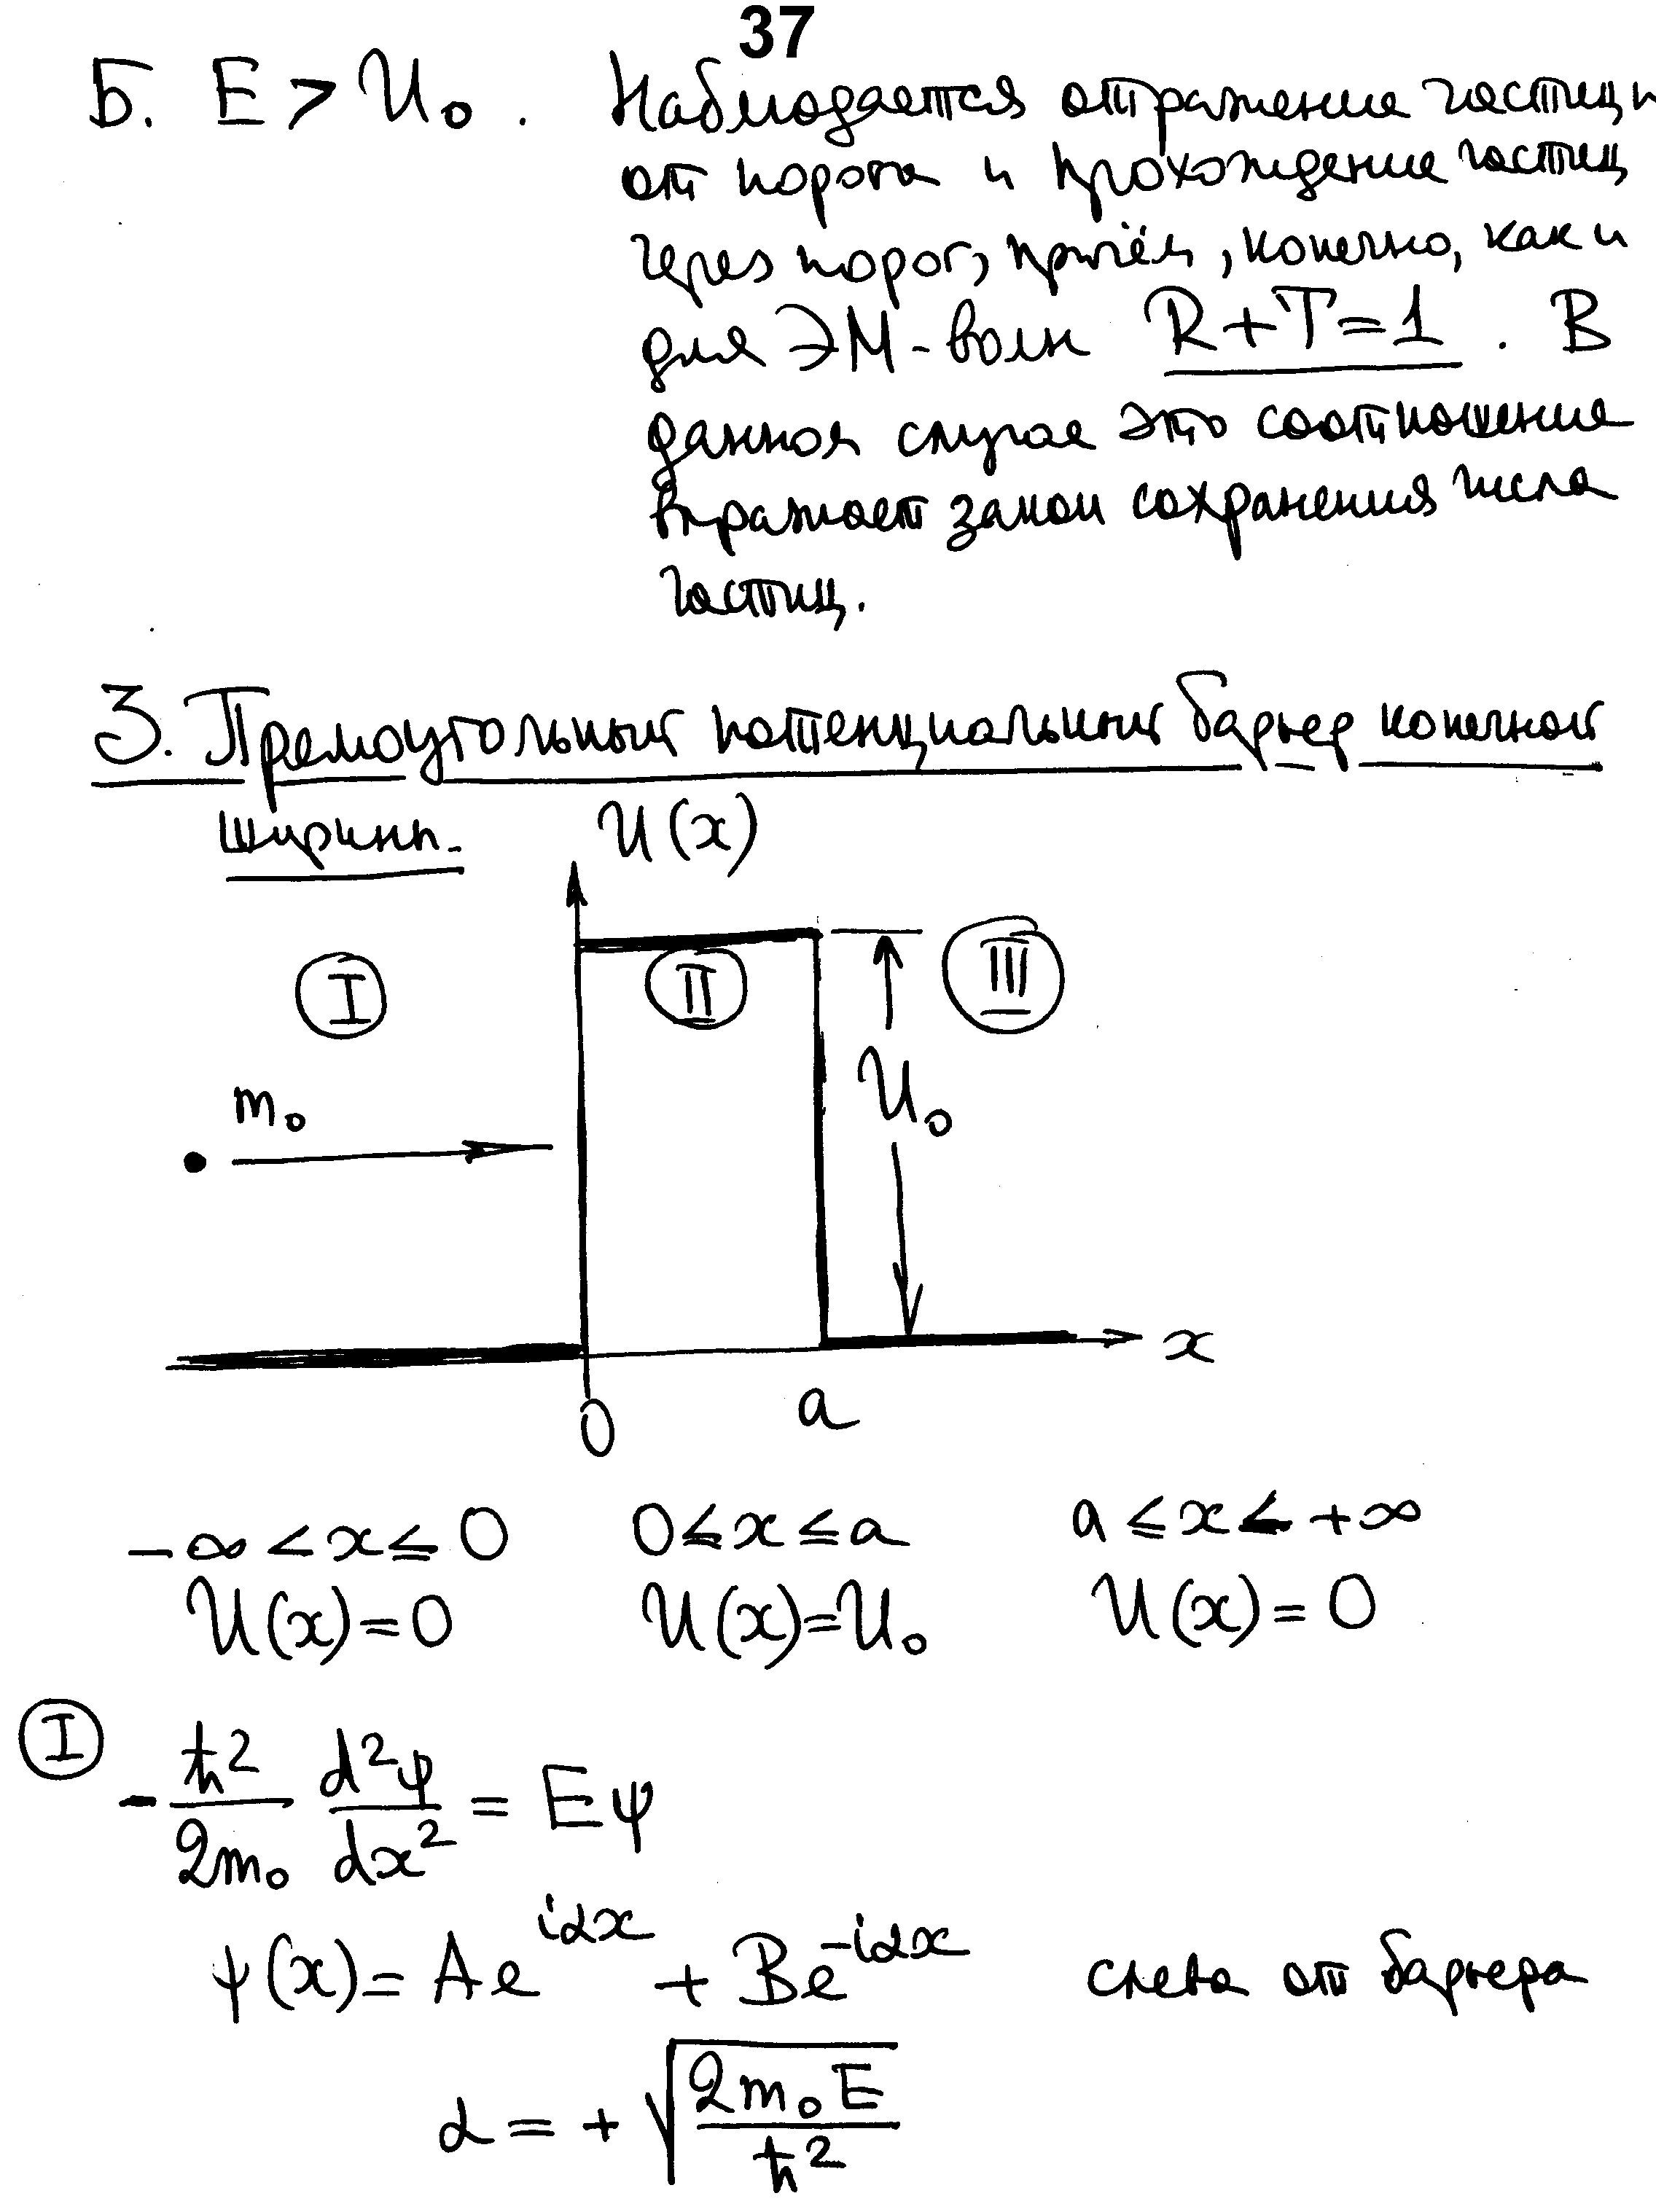 37
Б. E > U₀. Наблюдается отражение частицы
от порога и прохождение частиц
через порог, причём, конечно, как и
для ЭМ-волн R+T=1. В
данном случае это соотношение
выражает закон сохранения числа
частиц.
3. Прямоугольный потенциальный барьер конечной
ширины.
U(x)
I II III
m₀
U₀
x
0 a
-∞ < x ≤ 0 0 ≤ x ≤ a a ≤ x < +∞
U(x)=0 U(x)=U₀ U(x)=0
I
-ħ²/2m₀ d²ψ/dx² = Eψ
ψ(x)= Ae^{iαx} + Be^{-iαx} слева от барьера
α = + √(2m₀E/ħ²)